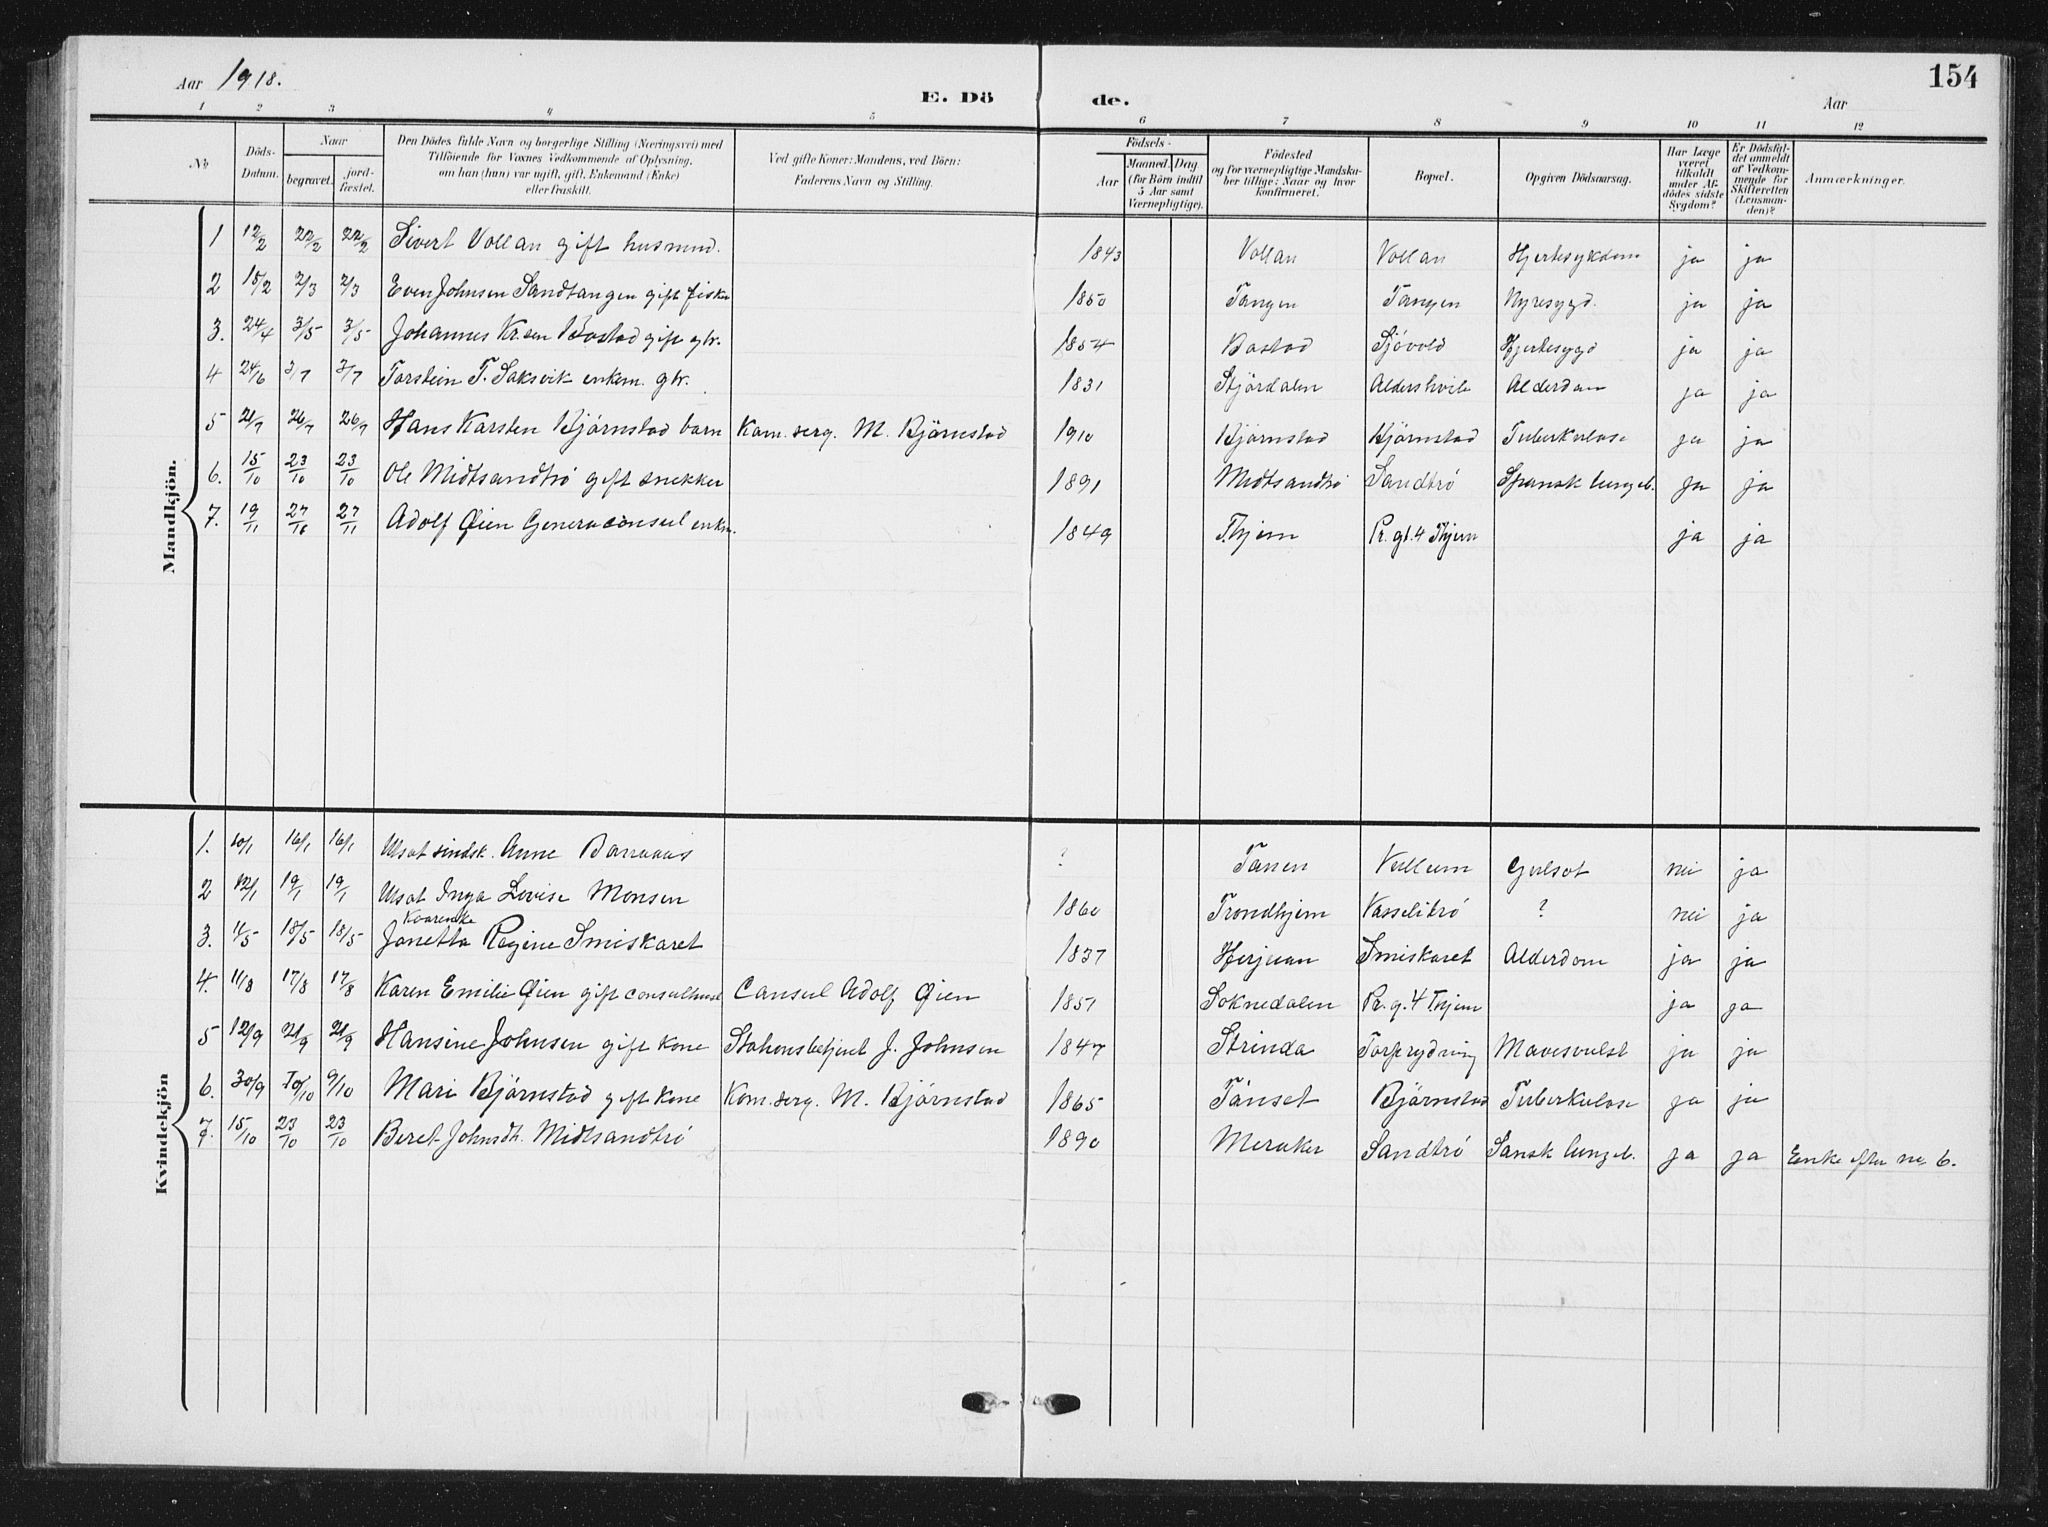 Aar 1918.
E. Dö de.
Aar
154
1 2 3 4 5 6 7 8 9 10 11 12
No
Döds-Datum.
Naar
begravet.
jord-fæstet.
Den Dödes fulde Navn og borgerlige Stilling (Næringsvei) med
Tilföiende for Voxnes Vedkommende af Oplysning,
om han (hun) var ugift, gift, Enkemand (Enke)
eller fraskilt.
Ved gifte Koner: Mandens, ved Börn:
Faderens Navn og Stilling.
Födsels-
Aar
Maaned. Dag
(for Börn indtil
5 Aar samt
Værnepligtige).
Födested
og for værnepligtige Mandska-
ber tillige: Naar og hvor
konfirmeret.
Bopæl.
Opgiven Dödsaarsag.
Har Læge
været
tilkaldt
under Af-
dödes sidste
Sygdom?
Er Dödsfal-
det anmeldt
af Vedkom-
mende for
Skifteretten
(Lensman-
den)?
Anmærkninger.
Mandkjön.
1 12/2 22/2 22/2 Sivert Vollan gift husmnd. 1843 Vollan Vollan Hjertesykdom ja ja
2 15/2 2/3 2/3 Even Johnsen Sandtangen gift fisker 1850 Tangen Tangen Nyresygd. ja ja
3. 24/4 3/5 3/5 Johannes Kr.sen Bostad gift gbr. 1854 Bostad Sjóvold Hjertesygd ja ja
4 24/6 3/7 3/7 Torstein T. Saksvik enkem. gbr. 1831 Stjördalen Aldershvile Alderdom ja ja
5 21/7 26/7 26/7 Hans Karsten Bjórnstad barn Kom. serg. M. Bjórnstad 1910 Bjórnstad Bjórnstad Tuberkulose ja ja
6. 15/10 23/10 23/10 Ole Midtsandtró gift snekker 1891 Midtsandtró Sandtró Spansk lungeb. ja ja
7. 19/11 27/11 27/11 Adolf Øien Generaconsul enkm. 1849 T.hjem Pr. gt. 4 T.hjem ja ja
Kvindekjön
1. 10/1 16/1 16/1 Ulsat sindsk. Anne ? Tanen Vullum Gulsot nei ja
2 12/1 19/1 19/1 Ulsat Inga Lovise Monsen 1860 Trondhjem Vasselitró ? nei ja
3. 11/5 18/5 18/5 Kaarenke
Janetta Regine Smiskaret 1837 Smiskaret Alderdom ja ja
4. 11/8 17/8 17/8 Karen Emilie Øien gift Consul Adolf Øien 1851 Soknedalen Pr. g. 4 T.hjem ja ja
5 12/9 21/9 21/9 Hansine Johnsen gift kone Stasjonsbetjent J. Johnsen 1847 Strinda Torprydning Mavesvulst ja ja
6. 30/9 10/10 9/10 Mari Bjórnstad gift kone Kom. serg. M. Bjórnstad 1865 Tónset Bjórnstad Tuberkulose ja ja
7. 15/10 23/10 23/10 Beret Johnsdt. Midtsandtró 1890 Meraker Sandtró Sansk lungeb. ja ja Enke efter no 6.